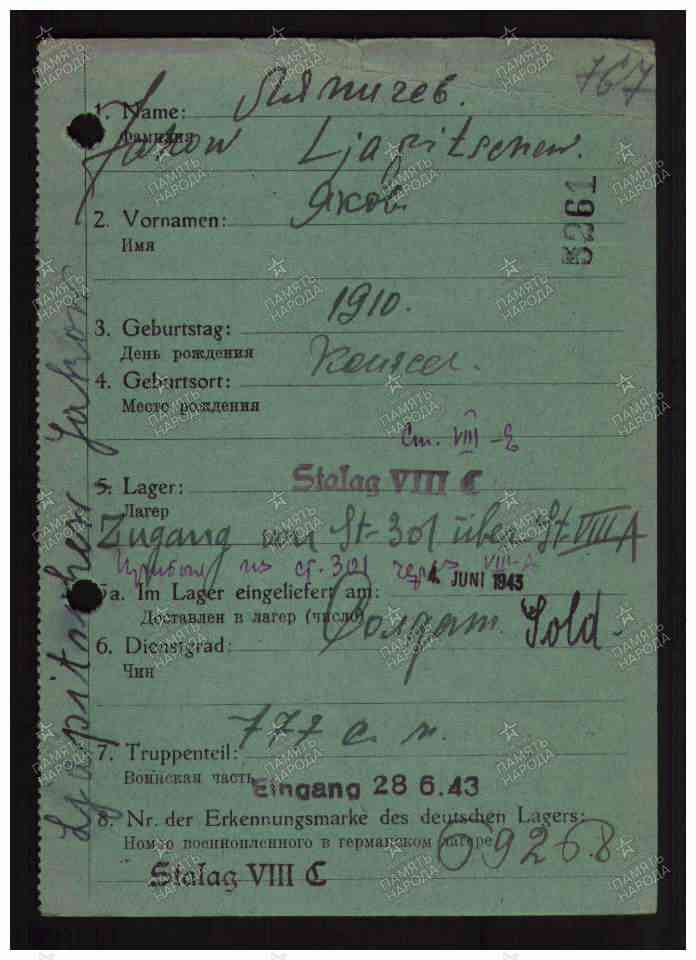 767
Ляпичев.
1. Name:
Фамилия
Jakow Ljapitschew.
Яков
2. Vornamen:
Имя
5261
1910.
3. Geburtstag:
День рождения
4. Geburtsort:
Место рождения
Ст. VIII-
5. Lager: Stalag VIII C
Лагер
Zugang von St-301 über St-VIII A
Прибыл из ст-301 через VIII-A
5a. Im Lager eingeliefert am: 4. JUNI 1943
Доставлен в лагер (число)
Солдат Sold.
6. Dienstgrad:
Чин
777 с. п.
7. Truppenteil:
Воинская часть
Eingang 28 6.43
8. Nr. der Erkennungsmarke des deutschen Lagers:
Номер военнопленного в германском лагере
Stalag VIII C
Jakow
ПАМЯТЬ НАРОДА